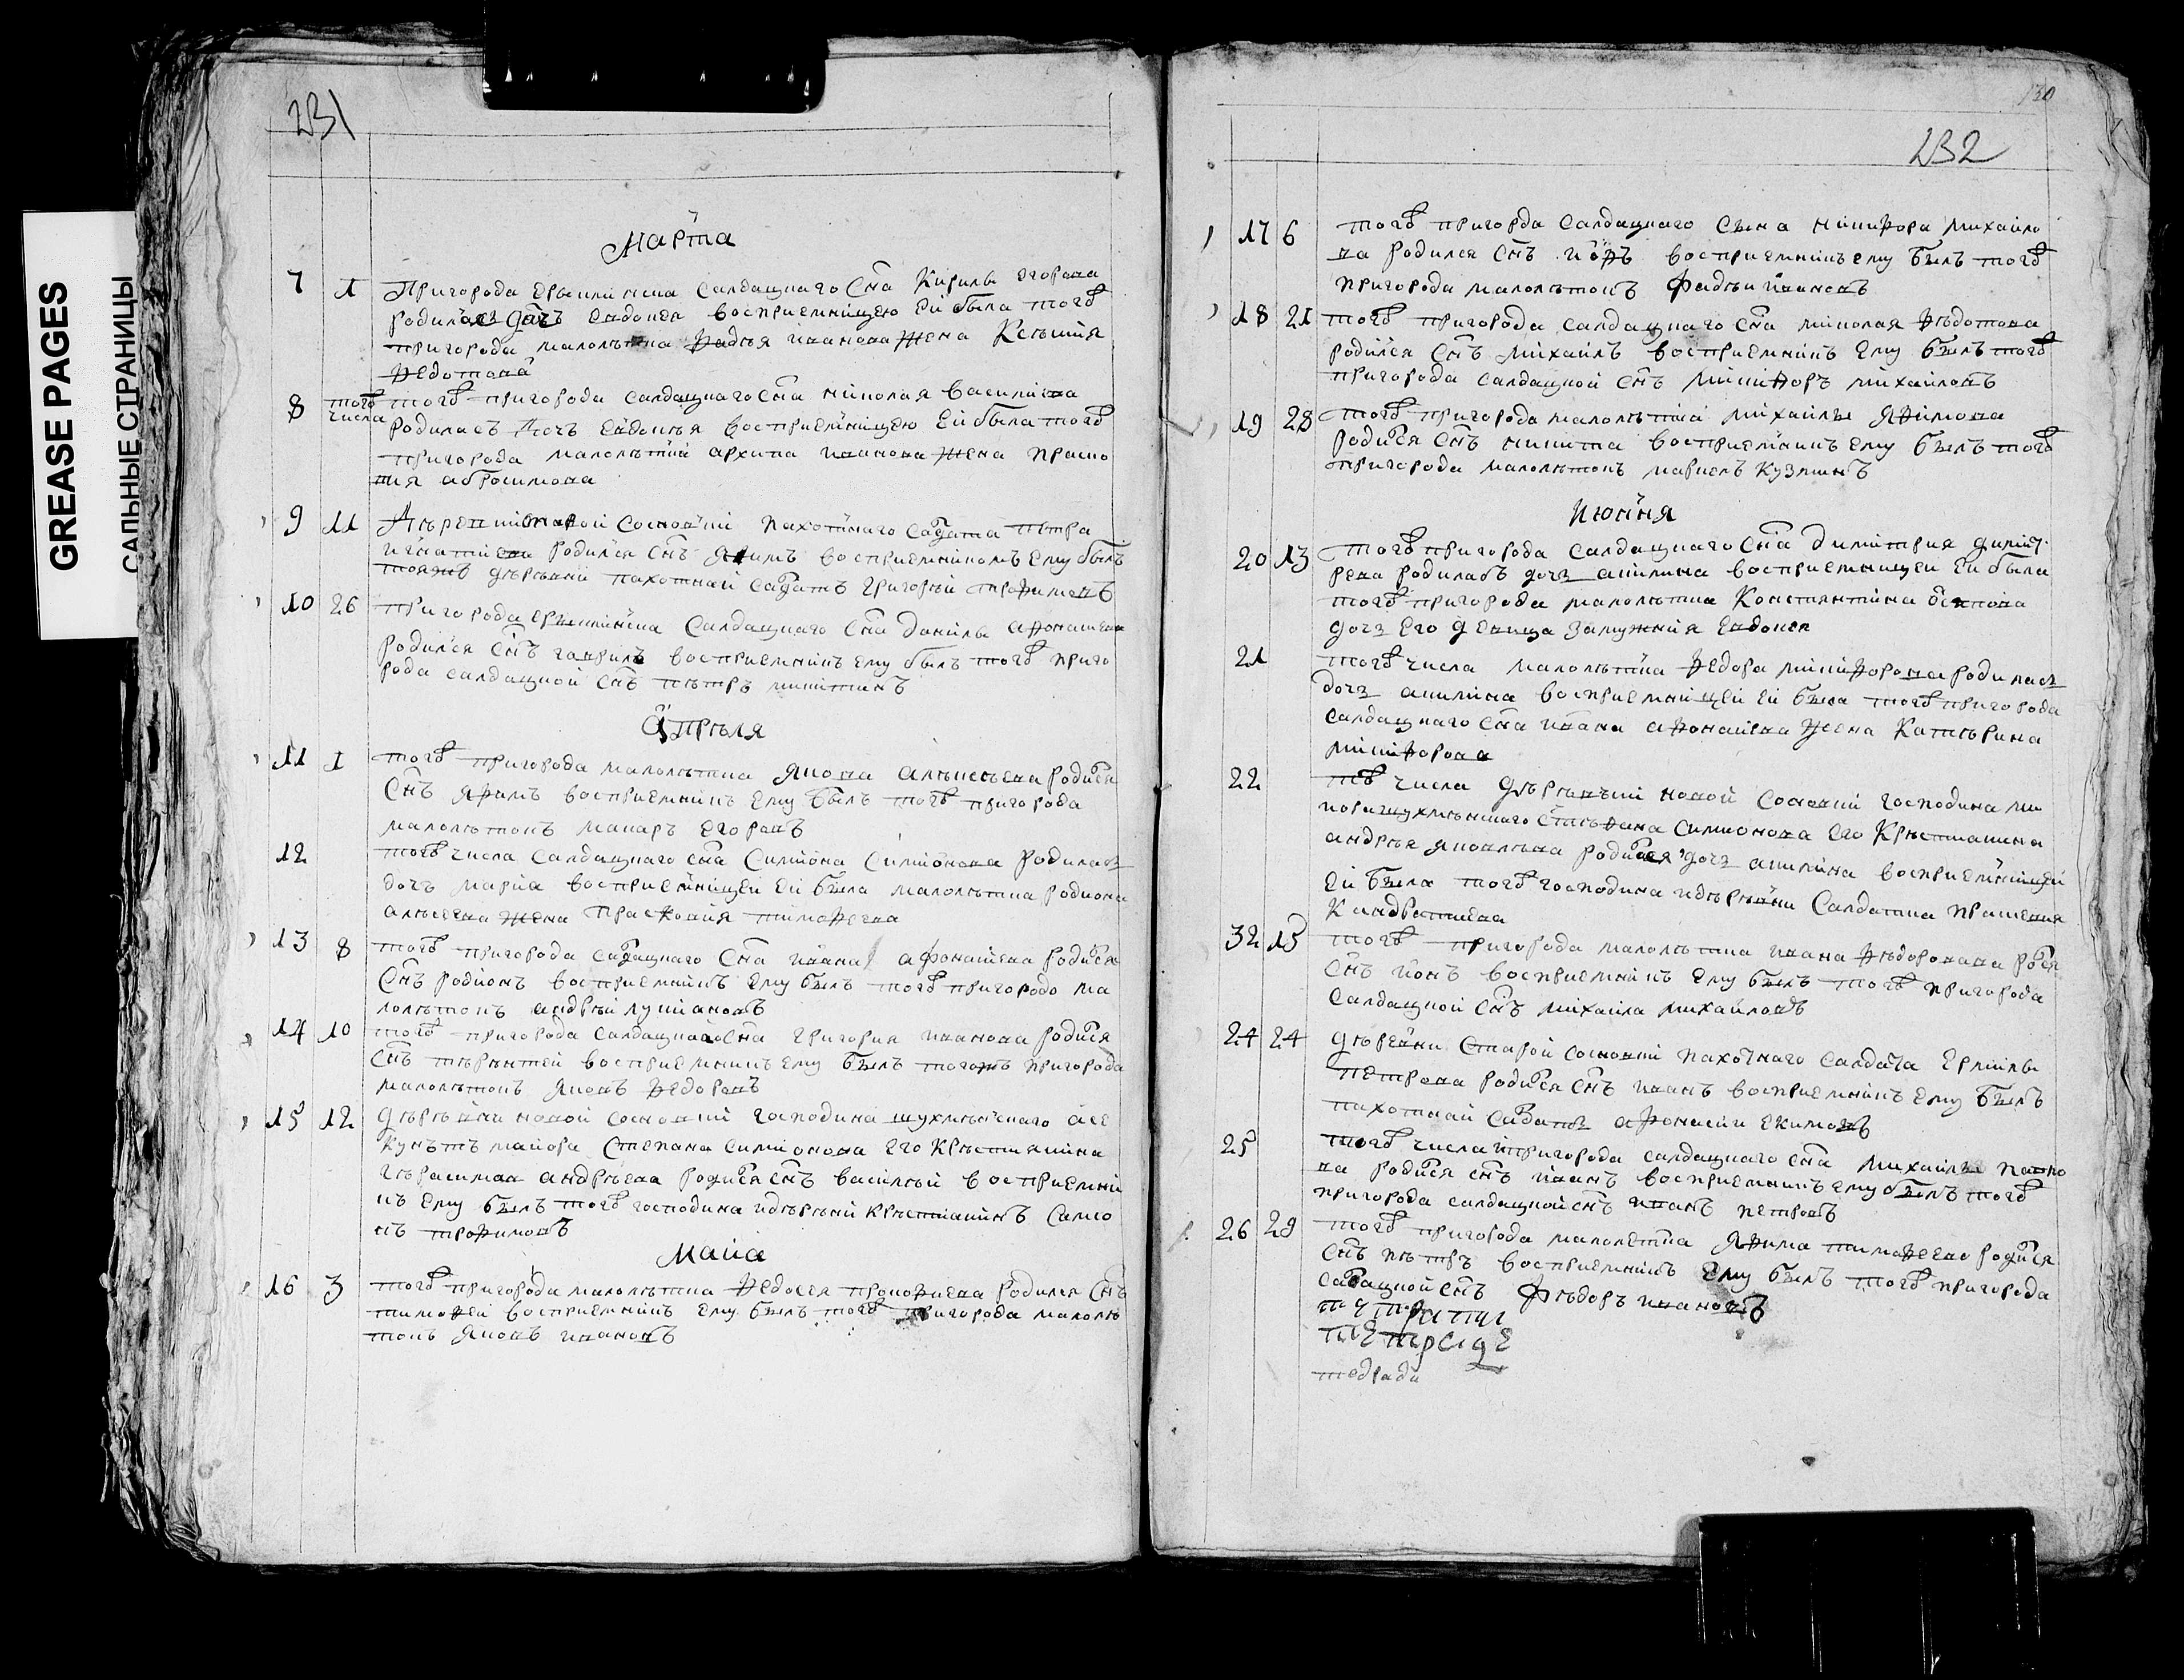 GREASE PAGES
САЛЬНЫЕ СТРАНИЦЫ
231
Марта
7 1 Пригорода Ерыклинска Салдацкаго Сна Кирилы Егорова
родилась дочь Евдокея восприемницею Ей была того
пригорода малолетка Фадея Иванова жена Ксения
Федотова
8 того числа того пригорода салдацкаго сна николая василива
родилась дочь Евдокея восприемницею Ей была того
пригорода малолетка архипа иванова жена праско
вия абросимова
9 11 старой сосновки пахотнаго салдата петра
игнатиева родился снъ Яким восприемником Ему былъ
тояжъ деревни пахотнай салдатъ григорий трофимовъ
10 26 пригорода Ерыклинска Салдацкаго Сна данилы афонасева
родился снъ гаврилъ восприемникъ ему былъ того приго
рода салдацкой снъ петръ никитинъ
Апреля
11 1 того пригорода малолетка якова алексеева родился
Снъ Яфимъ восприемникъ Ему былъ того пригорода
малолетокъ макаръ Егоровъ
12 того числа Салдацкаго сна Симиона Симионова родилась
дочь мария восприемницеи Ей была малолетка родиона
алексеева жена Прасковия тимофеева
13 8 того пригорода салдацкаго Сна ивана афонасиева родился
Снъ родионъ восприемникъ Ему былъ того пригородо ма
лолетокъ андрей лукиановъ
14 10 того пригорода Салдацкаго Сна григория иванова родился
Снъ терентей восприемникъ Ему былъ тогожъ пригорода
малолетокъ Яковъ Федоровъ
15 12 деревни новой сосновки господина
майора Степана симионова Его Крестиянина
герасима андреева родился снъ василей восприемни
къ Ему былъ того господина и деревни крестианинъ Само
трофимовъ
Маиа
16 3 того пригорода малолетка Федосея прокофиева родился Снъ
тимофей восприемникъ Ему былъ того пригорода малоле
токъ Яковъ ивановъ
130
232
17 6 того пригорда салдацкаго сына никифора михаило
ва родился снъ восприемникъ ему былъ того
пригорода малолетокъ Фадеи ивановъ
18 21 того пригорода салдацкаго сна николая Федотова
родился снъ Михаилъ восприемникъ Ему былъ того
пригорода салдацкой снъ Никифоръ михаиловъ
19 28 того пригорода малолетка михаилы Яфимова
родился снъ никита восприемникъ Ему былъ того
пригорода малолетокъ маркелъ Кузминъ
Июниа
20 13 того пригорода салдацкаго Сна димитрия
родилась дочь акилина восприемницеи Ей была
того пригорода малолетка Константина осипова
дочь Его девица Евдокея
21 того числа малолетка Федора никифорова родилась
дочь акилина восприемницеи Ей была того пригорода
салдацкаго сна ивана афонасиева жена Катерина
никифорова
22 числа деревни новой Сосновки господина
Степана симионова Его Крестианина
андрея яковлева родилася дочь акилина восприемницеи
Ей была того господина и деревни Салдатка
Кандратиева
32 15 того пригорода малолетка ивана
Снъ восприемникъ Ему былъ того пригорода
салдацкой снъ михаила михаиловъ
24 24 деревни Старой сосновки пахотнаго салдата Ермилы
петрова родился снъ иванъ восприемникъ Ему былъ
пахотнай салдатъ афонасии Екимовъ
25 того числа пригорода салдацкаго сна михаилы
родился снъ иванъ восприемникъ ему былъ того
пригорода салдацкой снъ иванъ петровъ
26 29 того пригорода малолетка Яфима тимофеева родился
снъ петръ восприемникъ Ему былъ того пригорода
салдацкой снъ Федоръ ивановъ